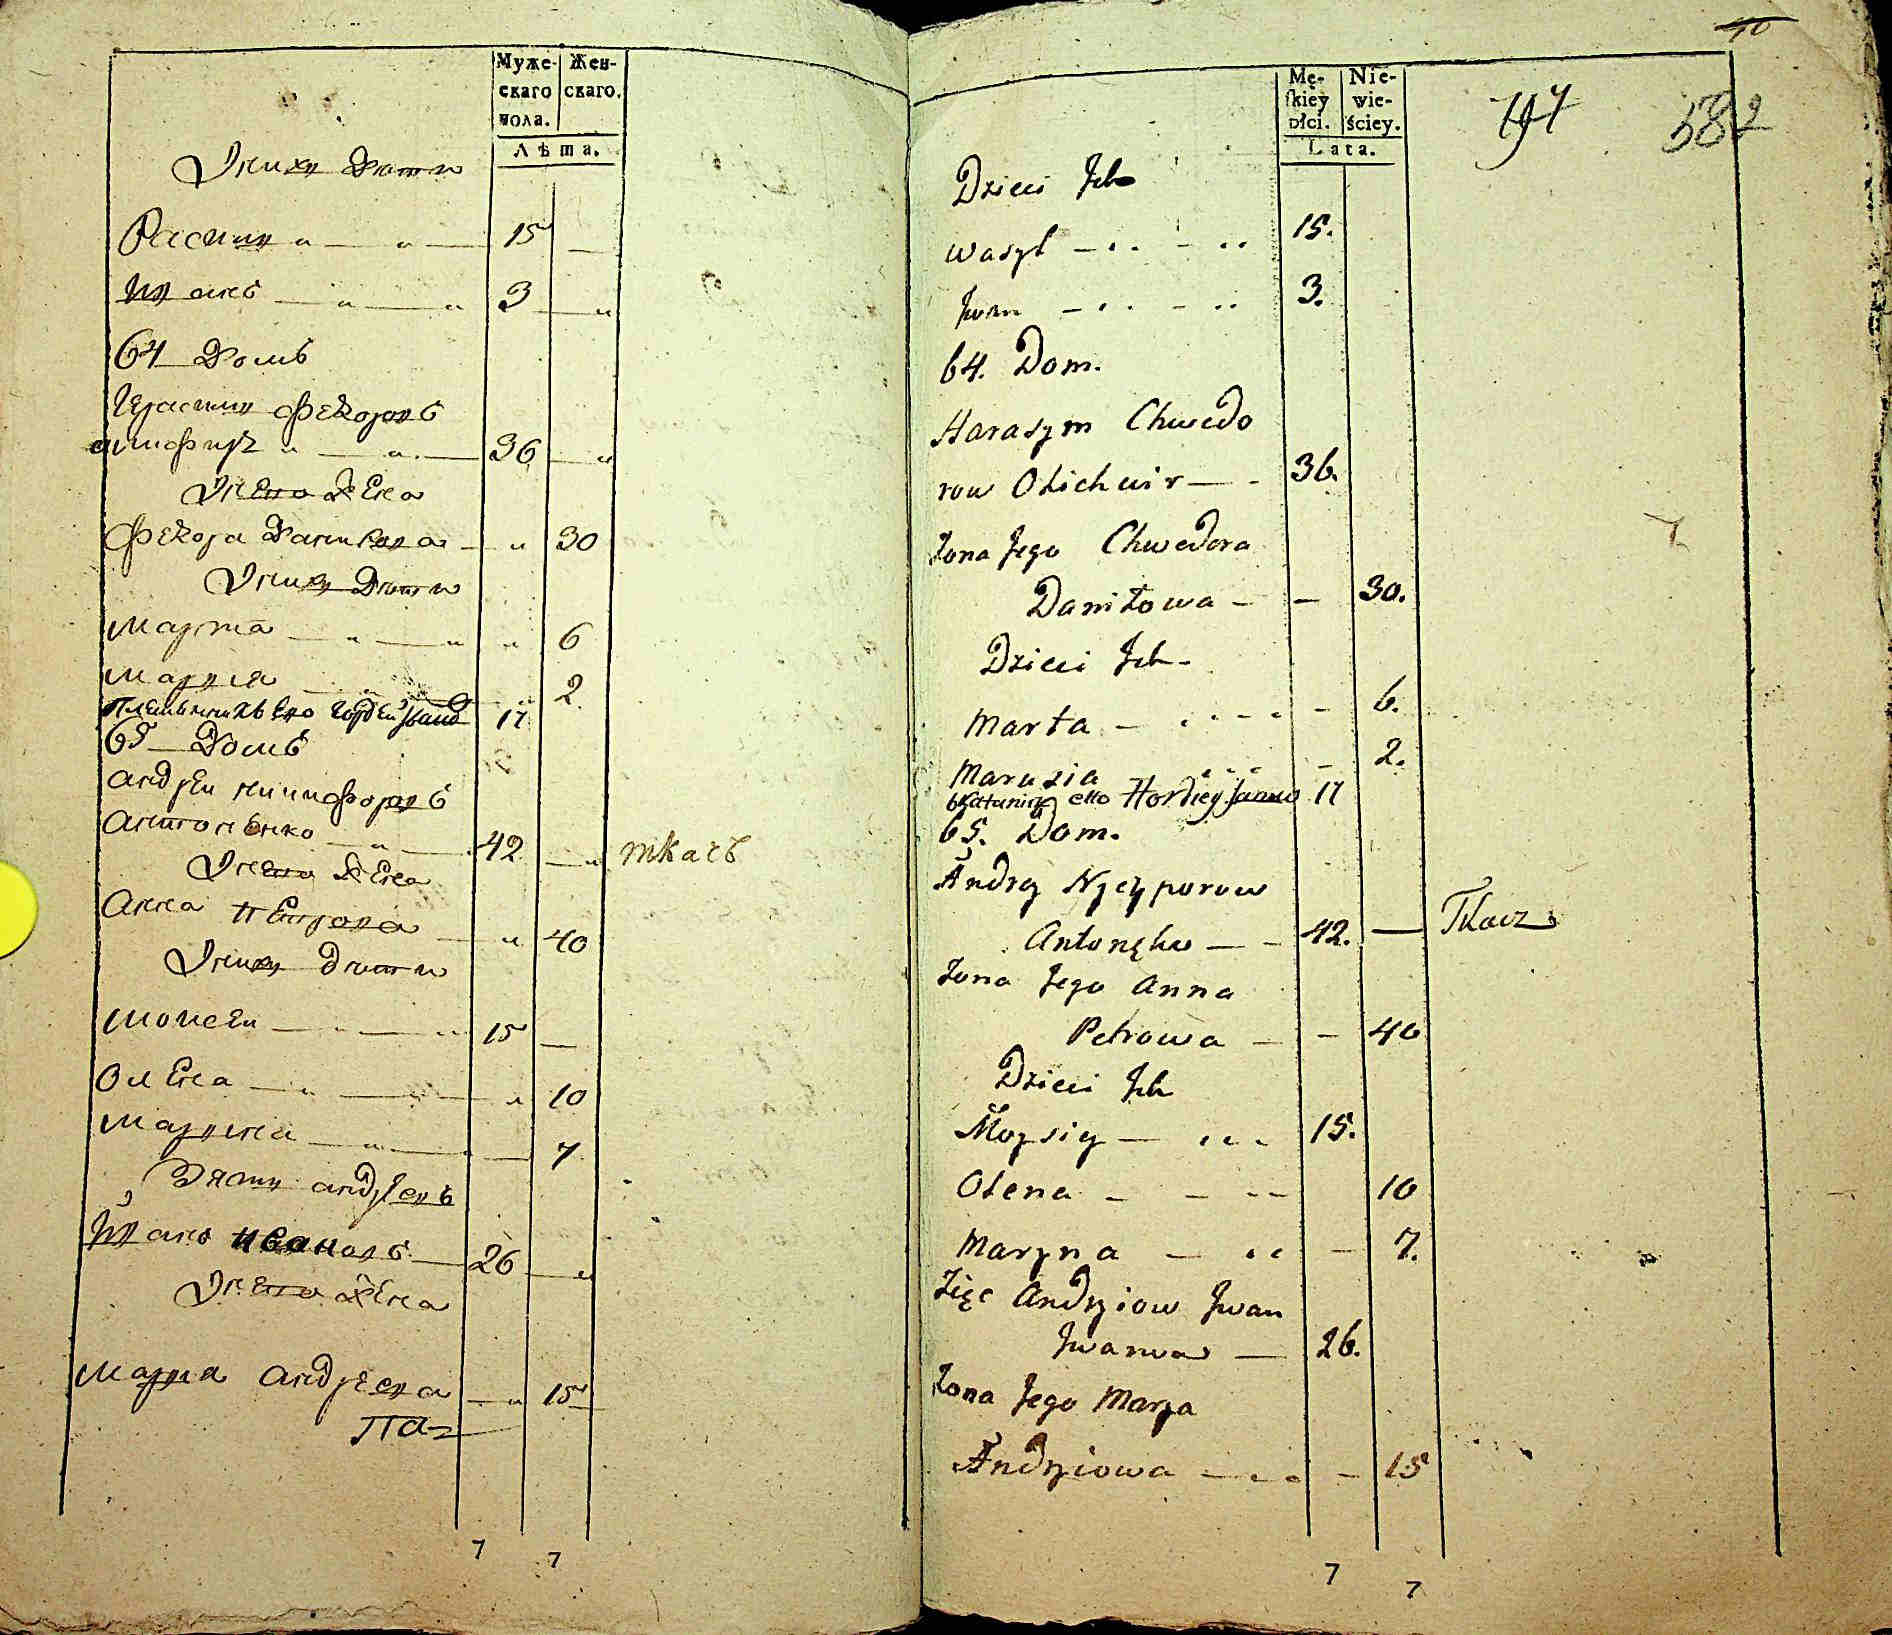 Муже-
скаго
пола.
Жен-
скаго.
Лѣта.
Ихъ дѣти
Василь 15
Иванъ 3
64 Домъ
Герасимъ Федоровъ
36
Его жена
Федора Данилова 30
Ихъ дѣти
Марта 6
Маруся 2
Племянникъ его Гордей 17
65 Домъ
Андрей Никифоровъ
Антоненко 42 ткачъ
Его жена
Анна Петрова 40
Ихъ дѣти
Моисей 15
Олена 10
Марина 7
Зять Андреевъ
Иванъ Ивановъ 26
Его жена
Мария Андреева 15
7 7
40
Mę-
skiey
płci.
Nie-
wie-
ściey.
Lata.
197 582
Dzieci Ich
Wasyl 15.
Iwan 3.
64. Dom.
Harasym Chwedo
row 36.
Żona Jego Chwedora
Daniłowa 30.
Dzieci Ich
Marta 6.
Marusia 2.
Hordiey 17
65. Dom.
Andrey Nyczyporow
Antonenko 42. Tkacz
Żona Jego Anna
Petrowa 40
Dzieci Ich
Moysiey 15.
Ołena 10
Maryna 7.
Zięć Andryiow Iwan
Iwanow 26.
Żona Jego Marya
Andryiowa 15
7 7